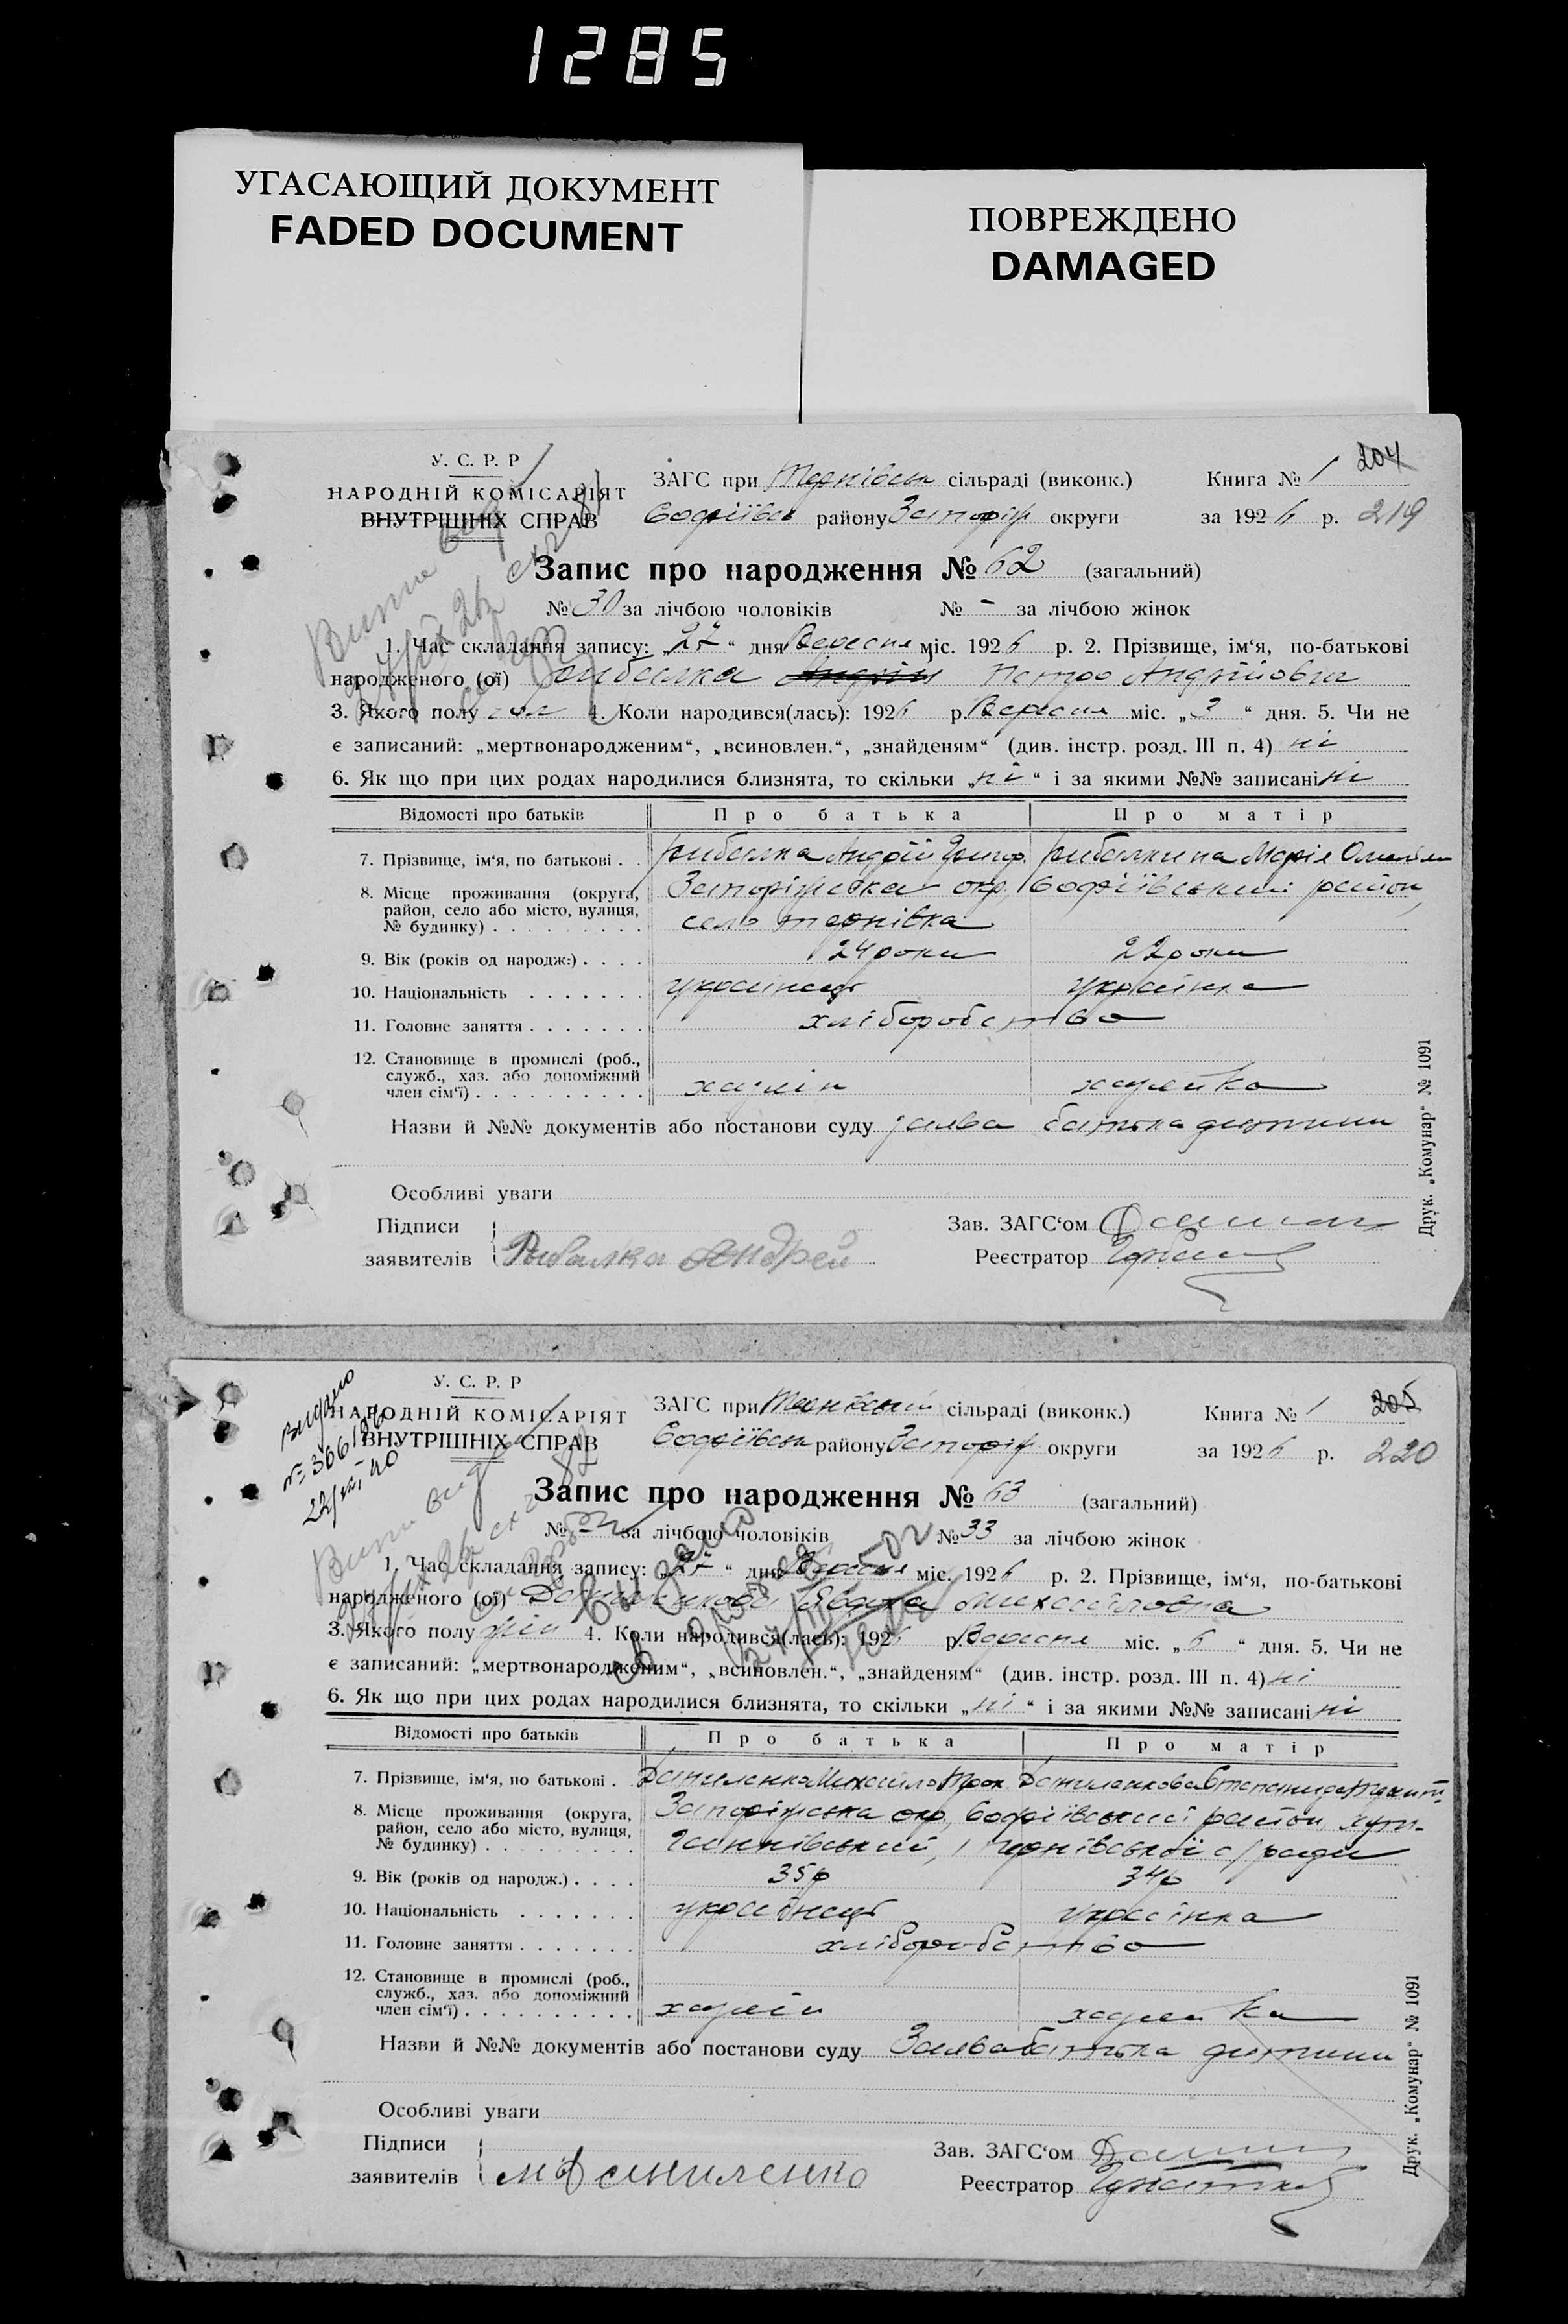 1285
УГАСАЮЩИЙ ДОКУМЕНТ
FADED DOCUMENT
ПОВРЕЖДЕНО
DAMAGED
У. С. Р. Р
НАРОДНІЙ КОМІСАРІЯТ
ВНУТРІШНІХ СПРАВ
ЗАГС при Тернівськ сільраді (виконк.)
Книга № 1
204
Софіївськ району Запоріж округи
за 1926 р. 219
Запис про народження № 62 (загальний)
№ 30 за лічбою чоловіків № - за лічбою жінок
1. Час складання запису: „27“ дня Вересня міс. 1926 р. 2. Прізвище, ім‘я, по-батькові
народженого (ої) Рибалка Андрій Петро Андрійович
3. Якого полу чол 4. Коли народився(лась): 1926 р. Вересня міс. „2“ дня. 5. Чи не
є записаний: „мертвонародженим“, „всиновлен.“, „знайденям“ (див. інстр. розд. III п. 4) ні
6. Як що при цих родах народилися близнята, то скільки „ні“ і за якими №№ записані ні
Відомості про батьків Про батька Про матір
7. Прізвище, ім‘я, по батькові . . Рибалка Андрій Григор. Рибалкина Марія
8. Місце проживання (округа, Запоріжська окр, Софіївський район,
район, село або місто, вулиця,
№ будинку) . . . . . . . . . село тернівка
9. Вік (років од народж:) . . . . 24 роки 22 роки
10. Національність . . . . . . . українець українка
11. Головне заняття . . . . . . . хліборобство
12. Становище в промислі (роб.,
служб., хаз. або допоміжний
член сім‘ї) . . . . . . . . . . хазяїн хазяйка
Назви й №№ документів або постанови суду заява батька дитини
Особливі уваги
Підписи
заявителів Рыбалка Андрей
Зав. ЗАГС‘ом
Реєстратор
Друк. „Комунар“ № 1091
Видано
№ 366186
У. С. Р. Р
НАРОДНІЙ КОМІСАРІЯТ
ВНУТРІШНІХ СПРАВ
ЗАГС при Тернівській сільраді (виконк.)
Книга № 1
205
Софіївськ району Запоріж округи
за 1926 р. 220
Запис про народження № 63 (загальний)
№ - за лічбою чоловіків № 33 за лічбою жінок
1. Час складання запису: „27“ дня Вересня міс. 1926 р. 2. Прізвище, ім‘я, по-батькові
народженого (ої) Даниленкова Явдоха Михайловна
3. Якого полу жін 4. Коли народився(лась): 1926 р. Вересня міс. „6“ дня. 5. Чи не
є записаний: „мертвонародженим“, „всиновлен.“, „знайденям“ (див. інстр. розд. III п. 4) ні
6. Як що при цих родах народилися близнята, то скільки „ні“ і за якими №№ записані ні
Відомості про батьків Про батька Про матір
7. Прізвище, ім‘я, по батькові . Даниленко Михайло Трох Даниленкова Степанида
8. Місце проживання (округа, Запоріжська окр, Софіївський район, хут.
район, село або місто, вулиця,
№ будинку) . . . . . . . . . Ганнівський, Тернівської с/ради
9. Вік (років од народж.) . . . . 35р 34р
10. Національність . . . . . . . українець українка
11. Головне заняття . . . . . . . хліборобство
12. Становище в промислі (роб.,
служб., хаз. або допоміжний
член сім‘ї) . . . . . . . . . . хазяїн хазяйка
Назви й №№ документів або постанови суду Заява батька дитини
Особливі уваги
Підписи
заявителів М Даниленко
Зав. ЗАГС‘ом
Реєстратор
Друк. „Комунар“ № 1091